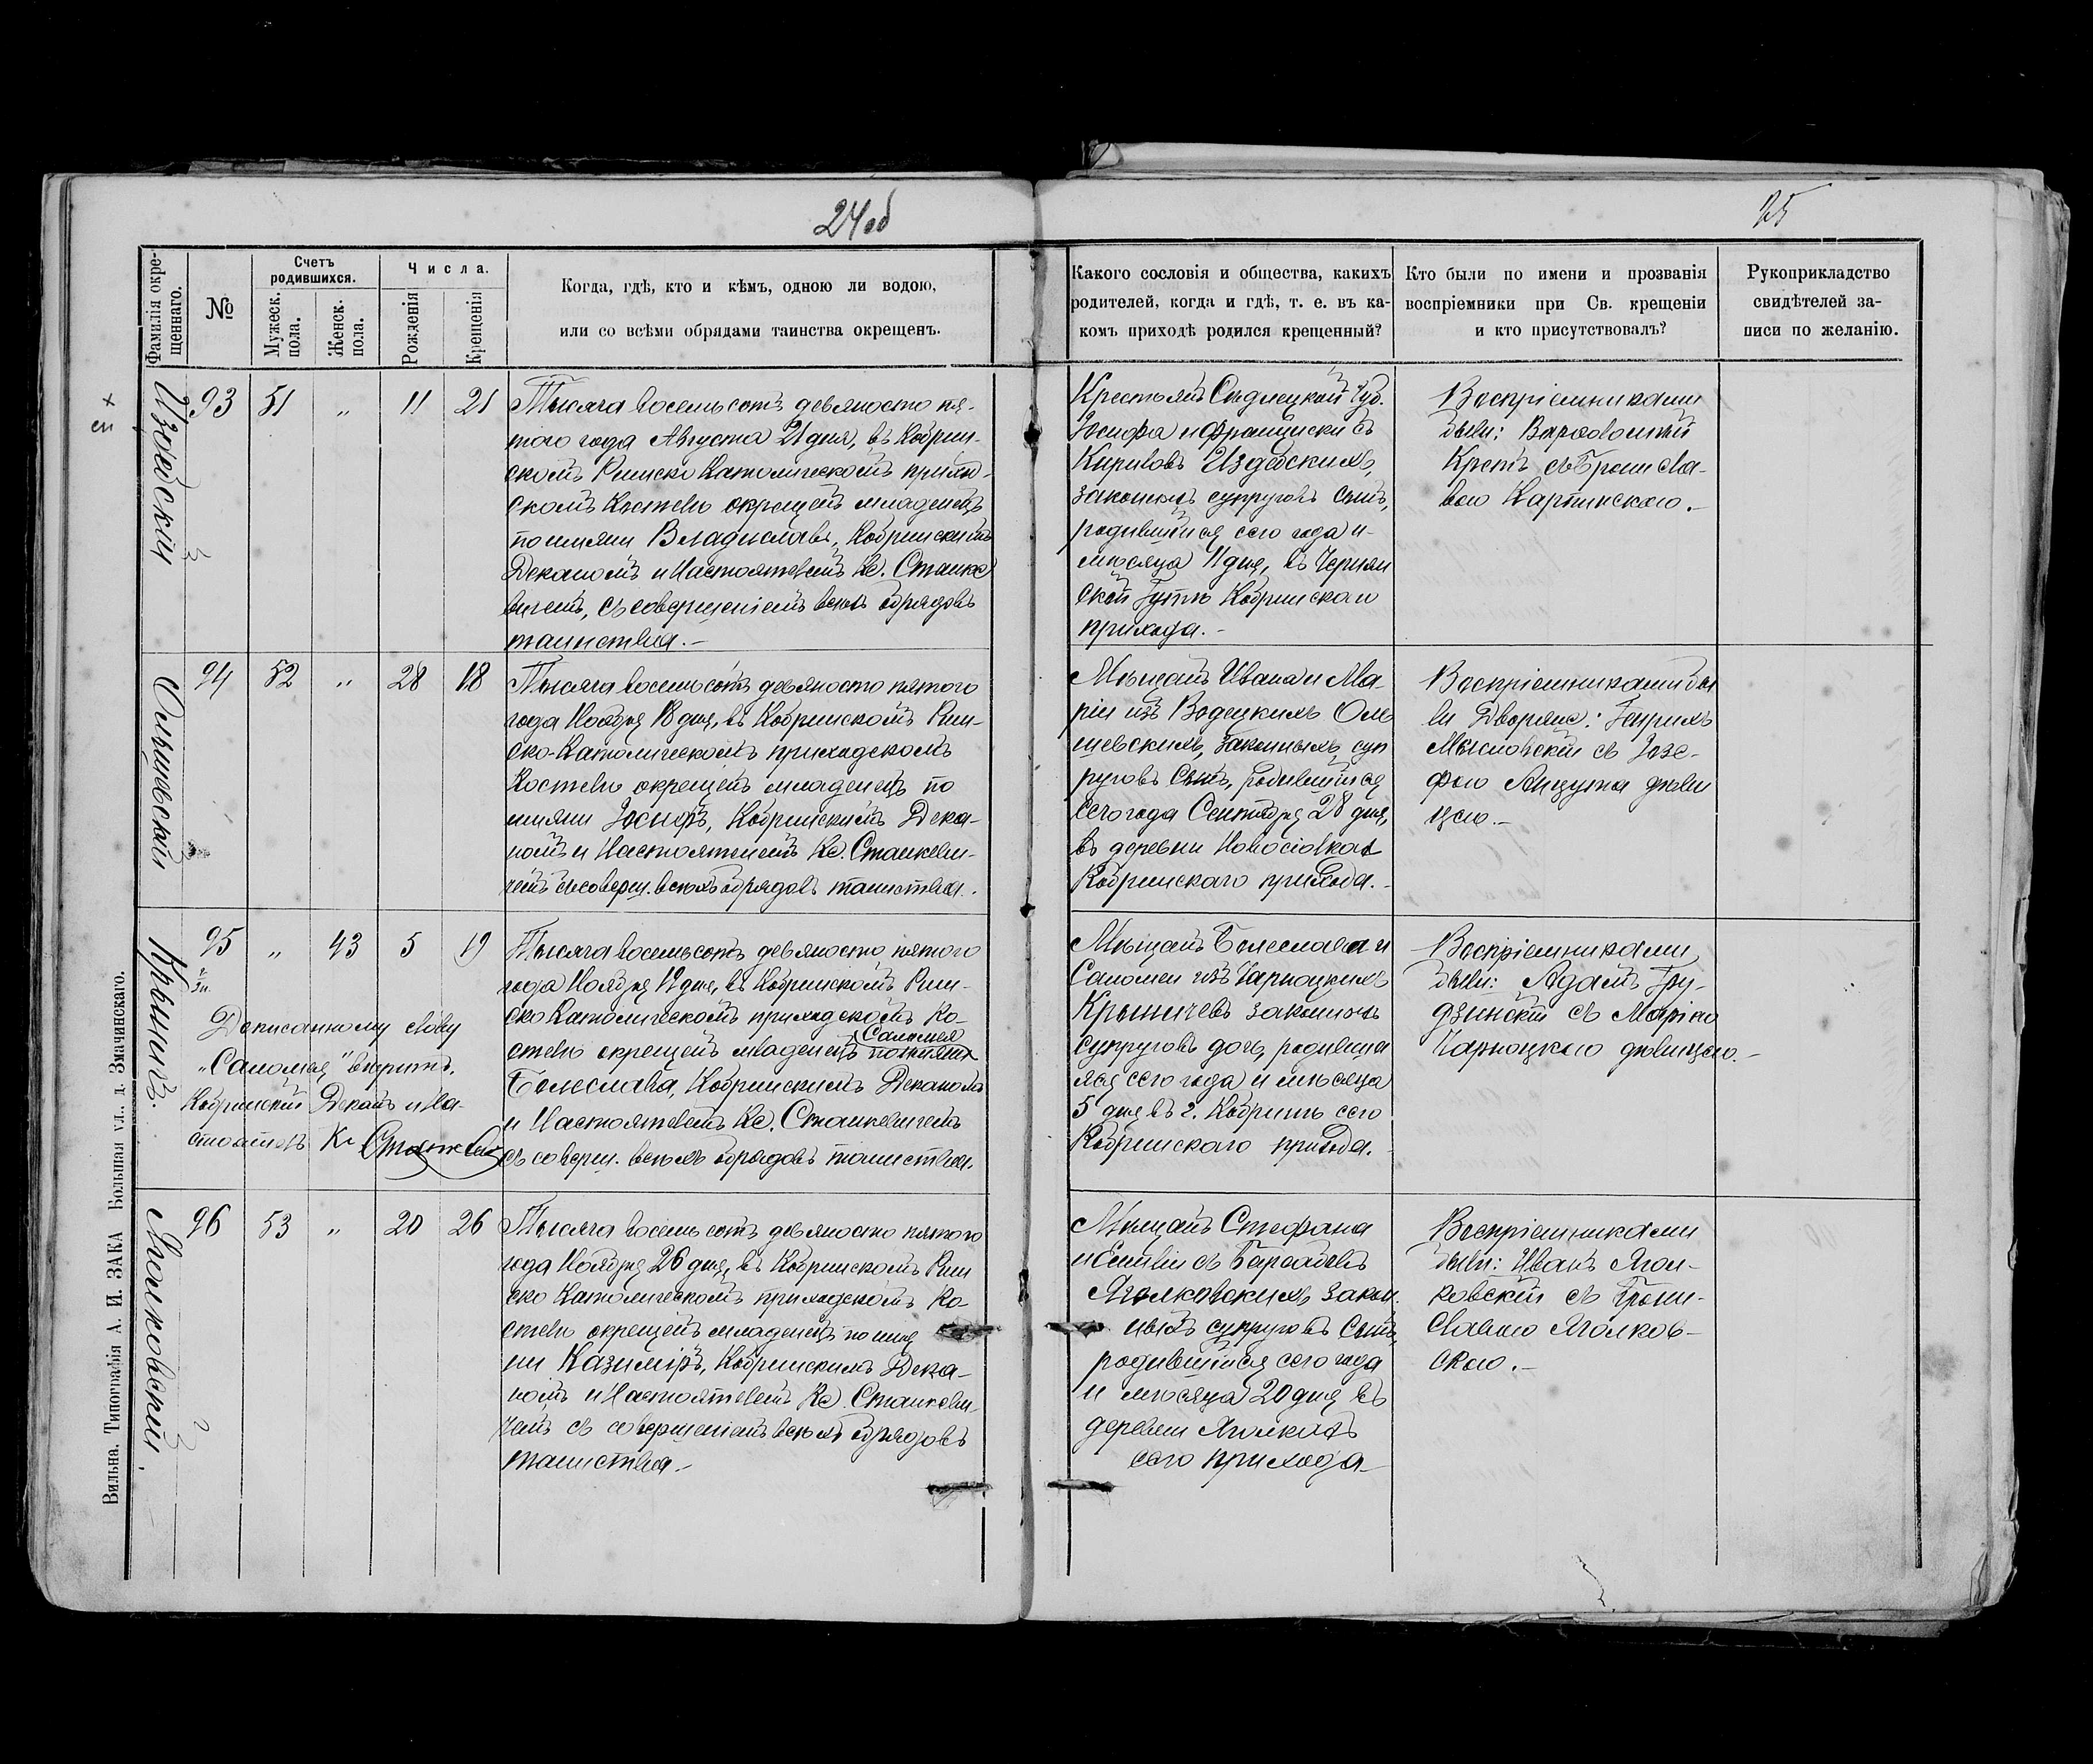 24об
25
Фамилія окре-
щеннаго.
№
Счетъ
родившихся.
Мужеск.
пола.
Женск.
пола.
Числа.
Рожденія
Крещенія
Когда, гдѣ, кто и кѣмъ, одною ли водою,
или со всѣми обрядами таинства окрещенъ.
Какого сословія и общества, какихъ
родителей, когда и гдѣ, т. е. въ ка-
комъ приходѣ родился крещенный?
Кто были по имени и прозванія
воспріемники при Св. крещеніи
и кто присутствовалъ?
Рукоприкладство
свидѣтелей за-
писи по желанію.
Издебскій
93 51 „ 11 21
Тысяча восемьсотъ девяносто пя-
того года Августа 21 дня, въ Кобрин-
скомъ Римско Католическомъ приход-
скомъ Костелѣ окрещенъ младенецъ
по имени Владиславъ, Кобринскимъ
Деканомъ и Настоятелемъ Кс. Станке
вичемъ, съ совершеніемъ всѣхъ обрядовъ
таинства.-
Крестьянъ Сѣдлецкой Губ.
Іосифа и Францишки съ
Издебскихъ,
законныхъ супруговъ сынъ,
родившійся сего года и
мѣсяца 11 дня, въ Чернян
ской Гутѣ Кобринскаго
прихода.-
Воспріемниками
были:
съ Бронисла-
вою Карпинскою.-
Ольшевскій
94 52 „ 28 18
Тысяча восемьсотъ девяносто пятого
года Ноября 18 дня, въ Кобринскомъ Рим-
ско-Католическомъ приходскомъ
Костелѣ окрещенъ младенецъ по
имени Іосифъ, Кобринскимъ Дека-
номъ и Настоятелемъ Кс. Станкеви-
чемъ съ соверш. всѣхъ обрядовъ таинства.
Мѣщанъ Ивана и Ма-
ріи изъ Водецкихъ Оль
шевскихъ, законныхъ суп
руговъ сынъ, родившійся
сего года Сентября 28 дня,
въ деревни Новосіолкахъ
Кобринскаго прихода.-
Воспріемниками бы
ли Дворяне: Генрихъ
Мысловскій съ Іозе-
фою Анцута дѣви
цею.-
Крыничъ.
95 „ 43 5 19
Дописанному слову
„Саломея" вѣрить.
Кобринскій Деканъ и На-
стоятель Кс Станкевичъ
Тысяча восемьсотъ девяносто пятого
года Ноября 19 дня, въ Кобринскомъ Рим-
ско Католическомъ приходскомъ Ко-
стелѣ окрещенъ младенецъ по имени
Саломея
Болеслава, Кобринскимъ Деканомъ
и Настоятелемъ Кс. Станкевичемъ
съ соверш. всѣхъ обрядовъ таинства.
Мѣщанъ Болеслава и
Саломеи изъ Чарноцкихъ
Крыничевъ законныхъ
супруговъ дочь, родивша
яся сего года и мѣсяца
5 дня въ г. Кобринѣ сего
Кобринскаго прихода.-
Воспріемниками
были: Адамъ Гру-
дзинскій съ Маріею
Чарноцкою дѣвицею.-
Яголковскій.
96 53 „ 20 26
Тысяча восемьсотъ девяносто пятого
года Ноября 26 дня, въ Кобринскомъ Рим
ско Католическомъ приходскомъ Ко-
стелѣ окрещенъ младенецъ по име
ни Казиміръ, Кобринскимъ Дека-
номъ и Настоятелемъ Кс. Станкеви-
чемъ съ совершеніемъ всѣхъ обрядовъ
таинства.-
Мѣщанъ Стефана
и Емиліи съ
Яголковскихъ закон
ныхъ супруговъ сынъ,
родившійся сего года
и мѣсяца 20 дня въ
деревни Яголкахъ
сего прихода-
Воспріемниками
были: Иванъ Ягол-
ковскій съ Брони-
славою Яголков-
скою.-
Вильна. Типографія А. И. ЗАКА Большая ул., д. Змачинскаго.